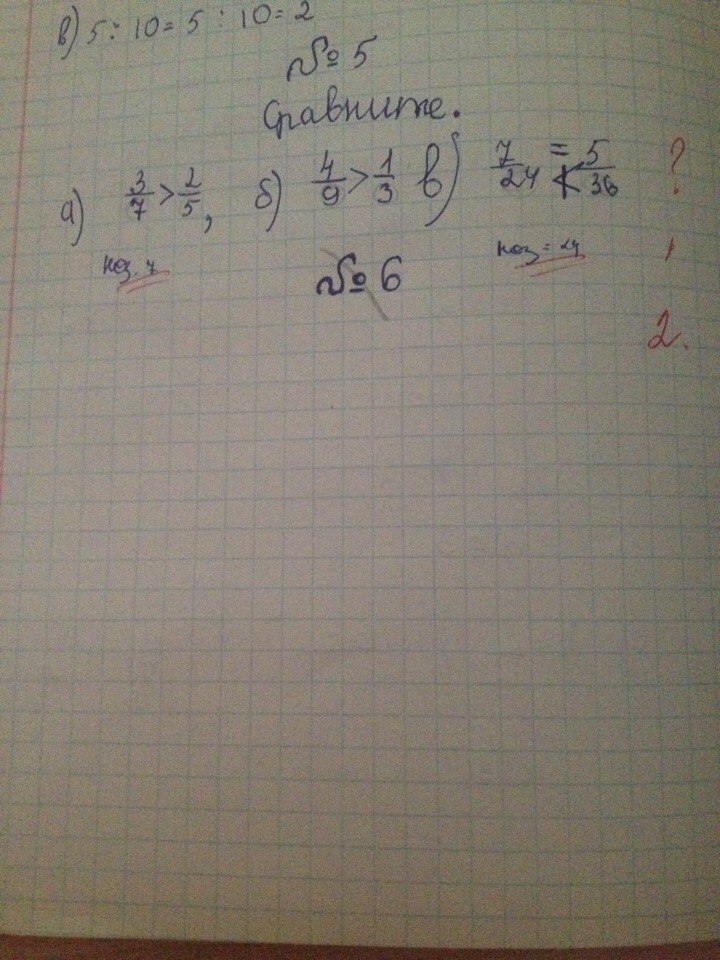 в) 5 : 10 = 5 : 10 = 2
№ 5
Сравните.
а) 3/7 > 2/5, б) 4/9 > 1/3 в) 7/24 = < 5/36 ?
ноз. 7 ноз = 24
№ 6
2.